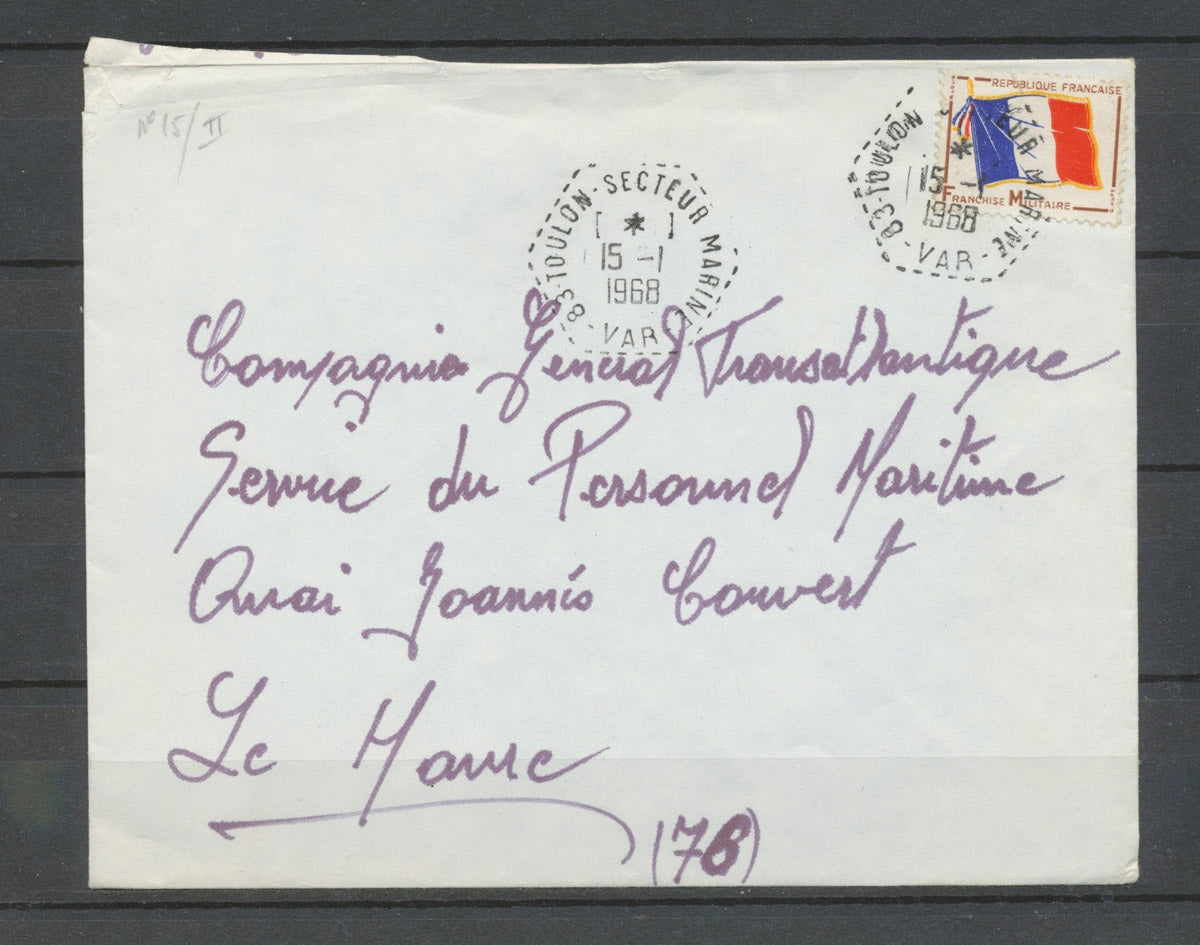 N° 15/II
RÉPUBLIQUE FRANÇAISE
FRANCHISE MILITAIRE
83-TOULON-SECTEUR MARINE
15 -1
1968
-VAR-
83-TOULON-SECTEUR MARINE
15 -1
1968
-VAR-
Compagnie Général Transatlantique
Service du Personnel Maritime
Quai Joannès Couvert
Le Havre
(76)